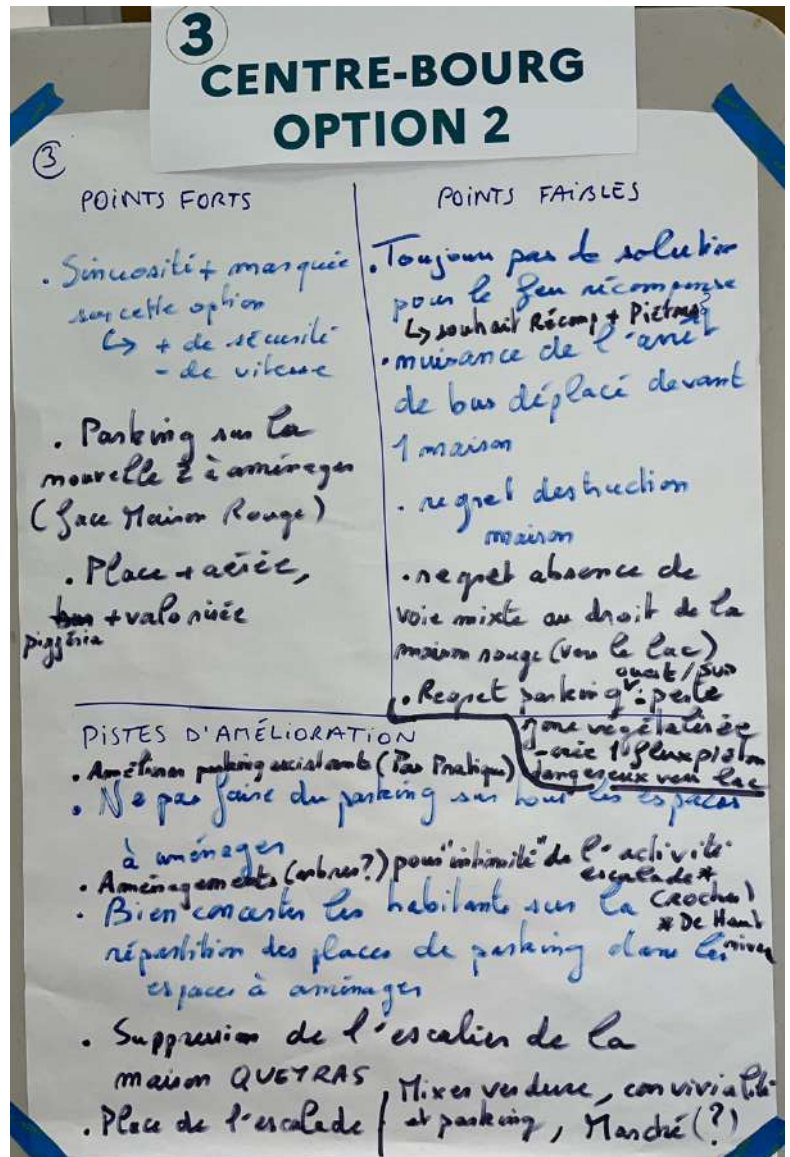 3
CENTRE-BOURG
OPTION 2
3
POINTS FORTS
. Sinuosité + marquée
sur cette option
↳ + de sécurité
- de vitesse
. Parking sur la
nouvelle Z à aménager
(face Maison Rouge)
. Place + aérée,
+ valorisée
pizzéria
POINTS FAIBLES
. Toujours pas de solution
pour le feu récompense
↳ souhait Récomp + Piétons
. nuisance de l'arrêt
de bus déplacé devant
1 maison
. regret destruction
maison
. regret absence de
voie mixte au droit de la
maison rouge (vers le lac)
ouest/sud
. Regret parking : perte
zone végétalisée
- crée 1 flux piéton
dangereux vers lac
PISTES D'AMÉLIORATION
. Améliorer parking existants (Pas Pratique)
. Ne pas faire du parking sur tous les espaces
à aménager
. Aménagements (arbres?) pour "intimité" de l'activité
escalade*
. Bien concerter les habitants sur la
répartition des places de parking dans les
espaces à aménager
* De Haut
niveau
. Suppression de l'escalier de la
maison QUEYRAS
. Place de l'escalade / Mixer verdure, convivialité
et parking, Marché (?)